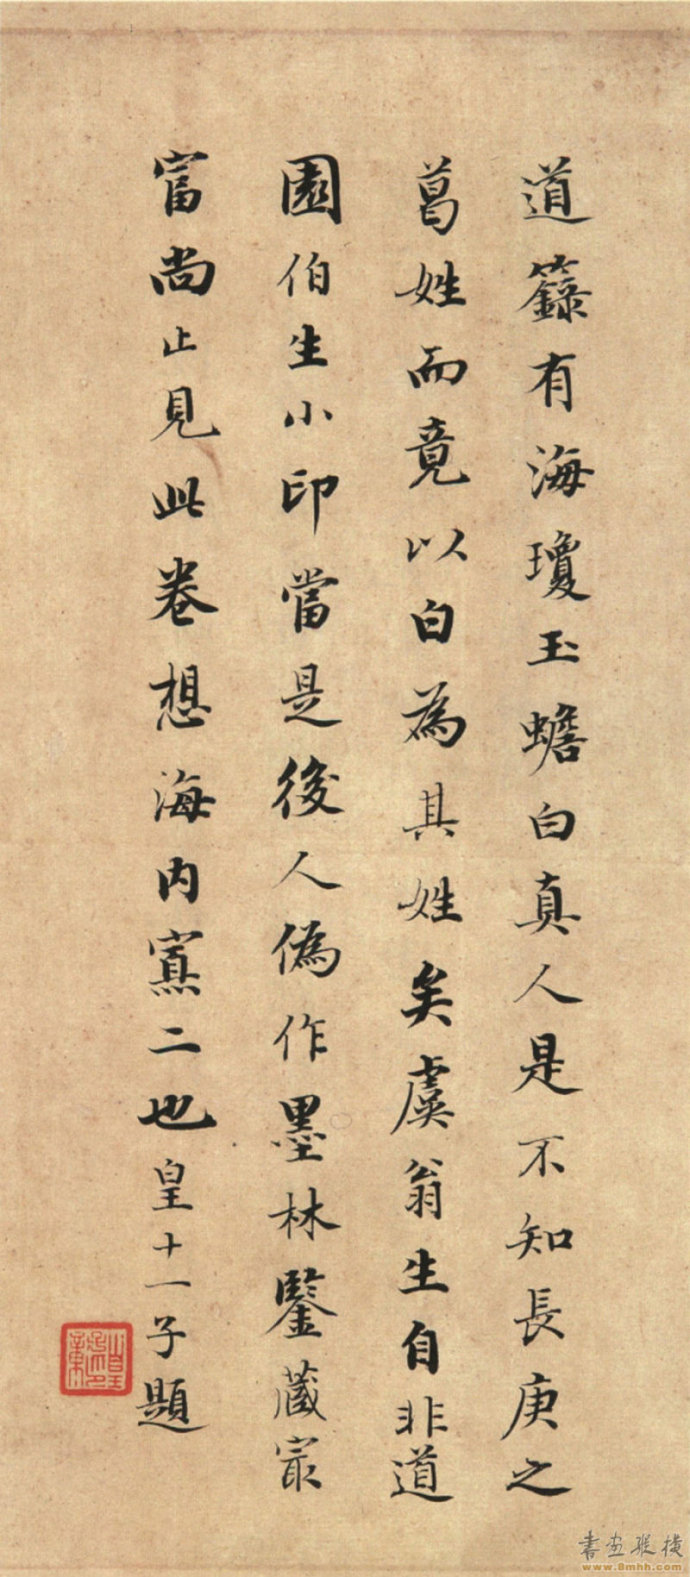 道籙有海瓊玉蟾白真人是不知長庚之
葛姓而竟以白為其姓矣虞翁生自非道
園伯生小印當是後人偽作墨林鑒藏㝡
富尚止見此卷想海内寡二也皇十一子題
書画纵横
www.8mhh.com